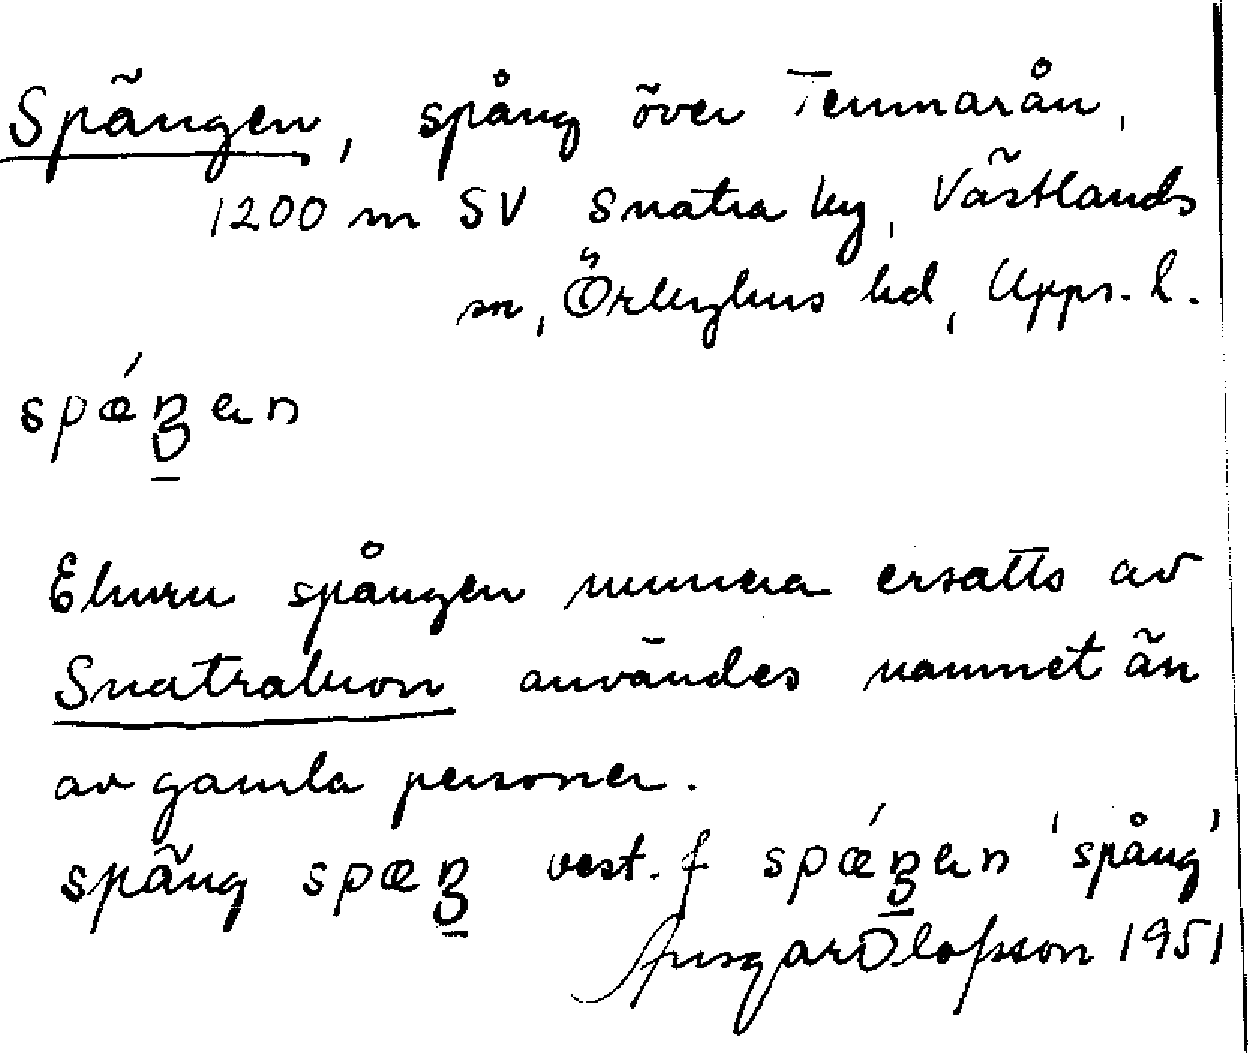 Spängen, spång över Temnarån,
1200 m SV Snatra by, Västlands
sn, Örbyhus hd, Upps. l.
spǽŋen
Ehuru spången numera ersatts av
Snatrabron användes namnet än
av gamla personer.
späng spæŋ best. f spǽŋen 'spång'
Ansgar Olofsson 1951